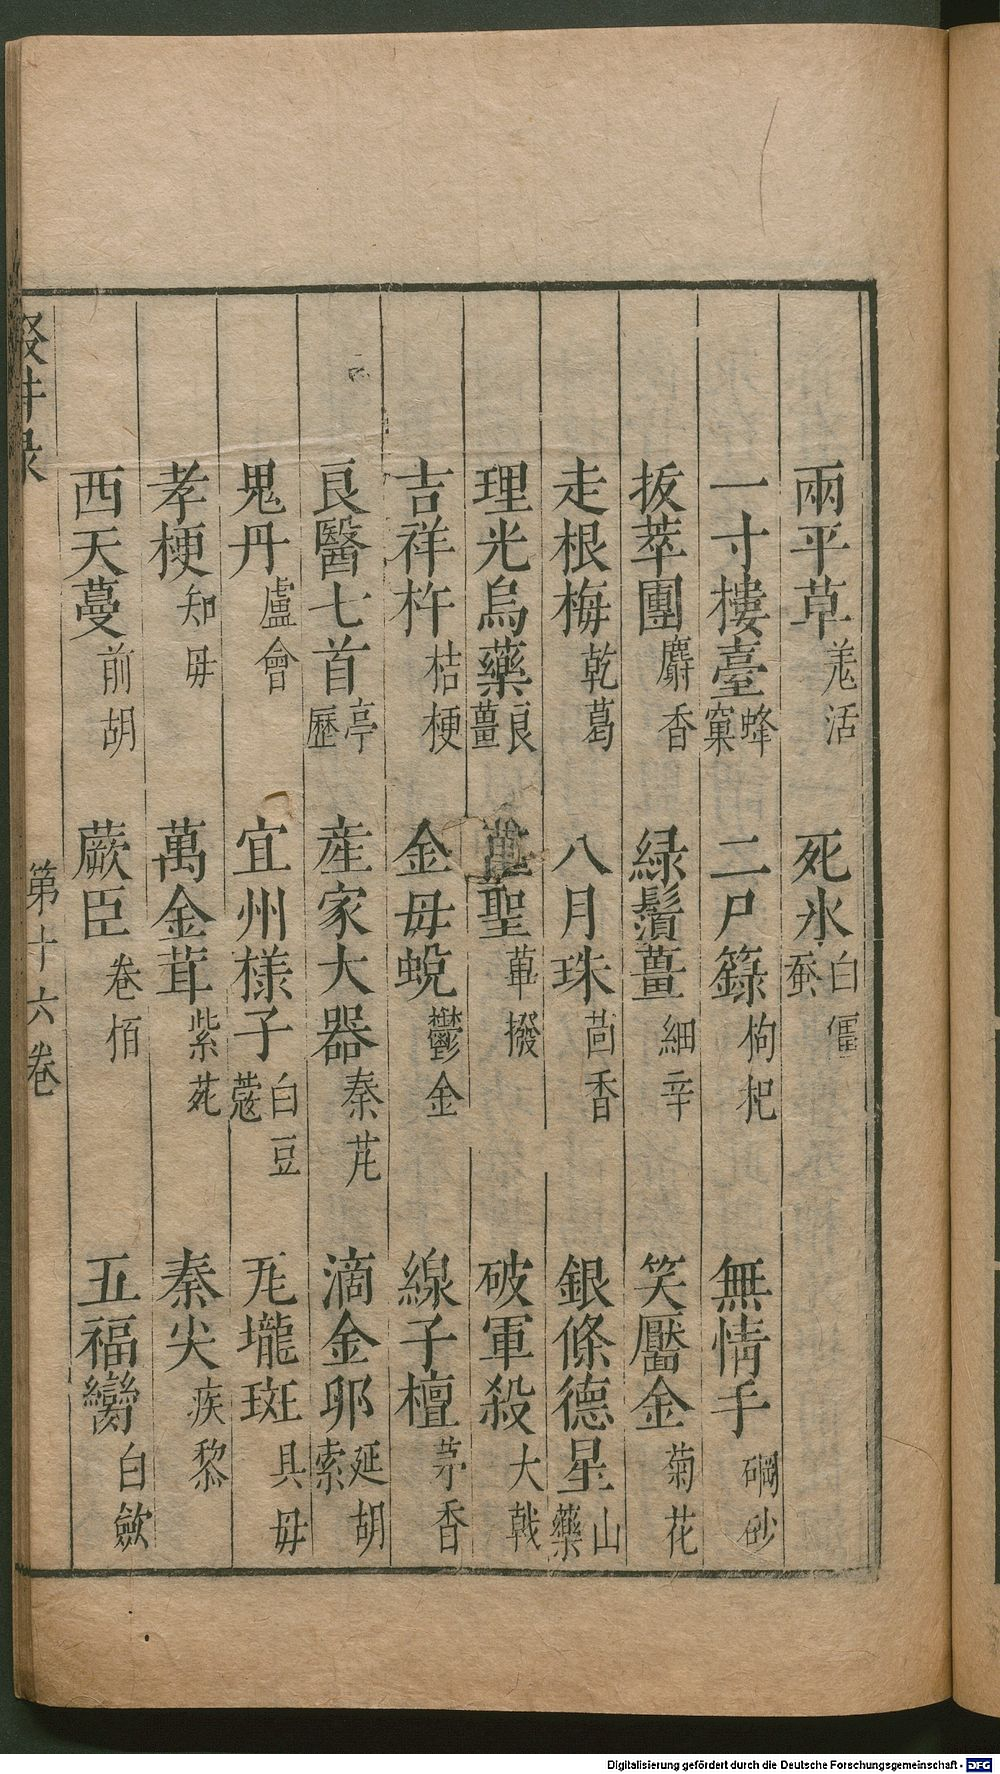 兩平草羗活　死氷白僵蚕
一寸樓臺蜂窠　二尸籙枸杞　無情手硇砂
拔萃團麝香　綠鬚薑細辛　笑靨金菊花
走根梅乾葛　八月珠茴香　銀條德星山藥
理光烏藥良薑　蓽聖蓽撥　破軍殺大戟
吉祥杵桔梗　金毋蛻鬱金　線子檀茅香
良醫七首亭歷　産家大器秦芃　滴金卵延胡索
鬼丹盧會　宜州様子白豆蔻　尨壠斑具毋
孝梗知毋　萬金茸紫菀　秦尖疾黎
西天蔓前胡　蕨臣卷栢　五福臠白歛
第十六卷
Digitalisierung gefördert durch die Deutsche Forschungsgemeinschaft - DFG